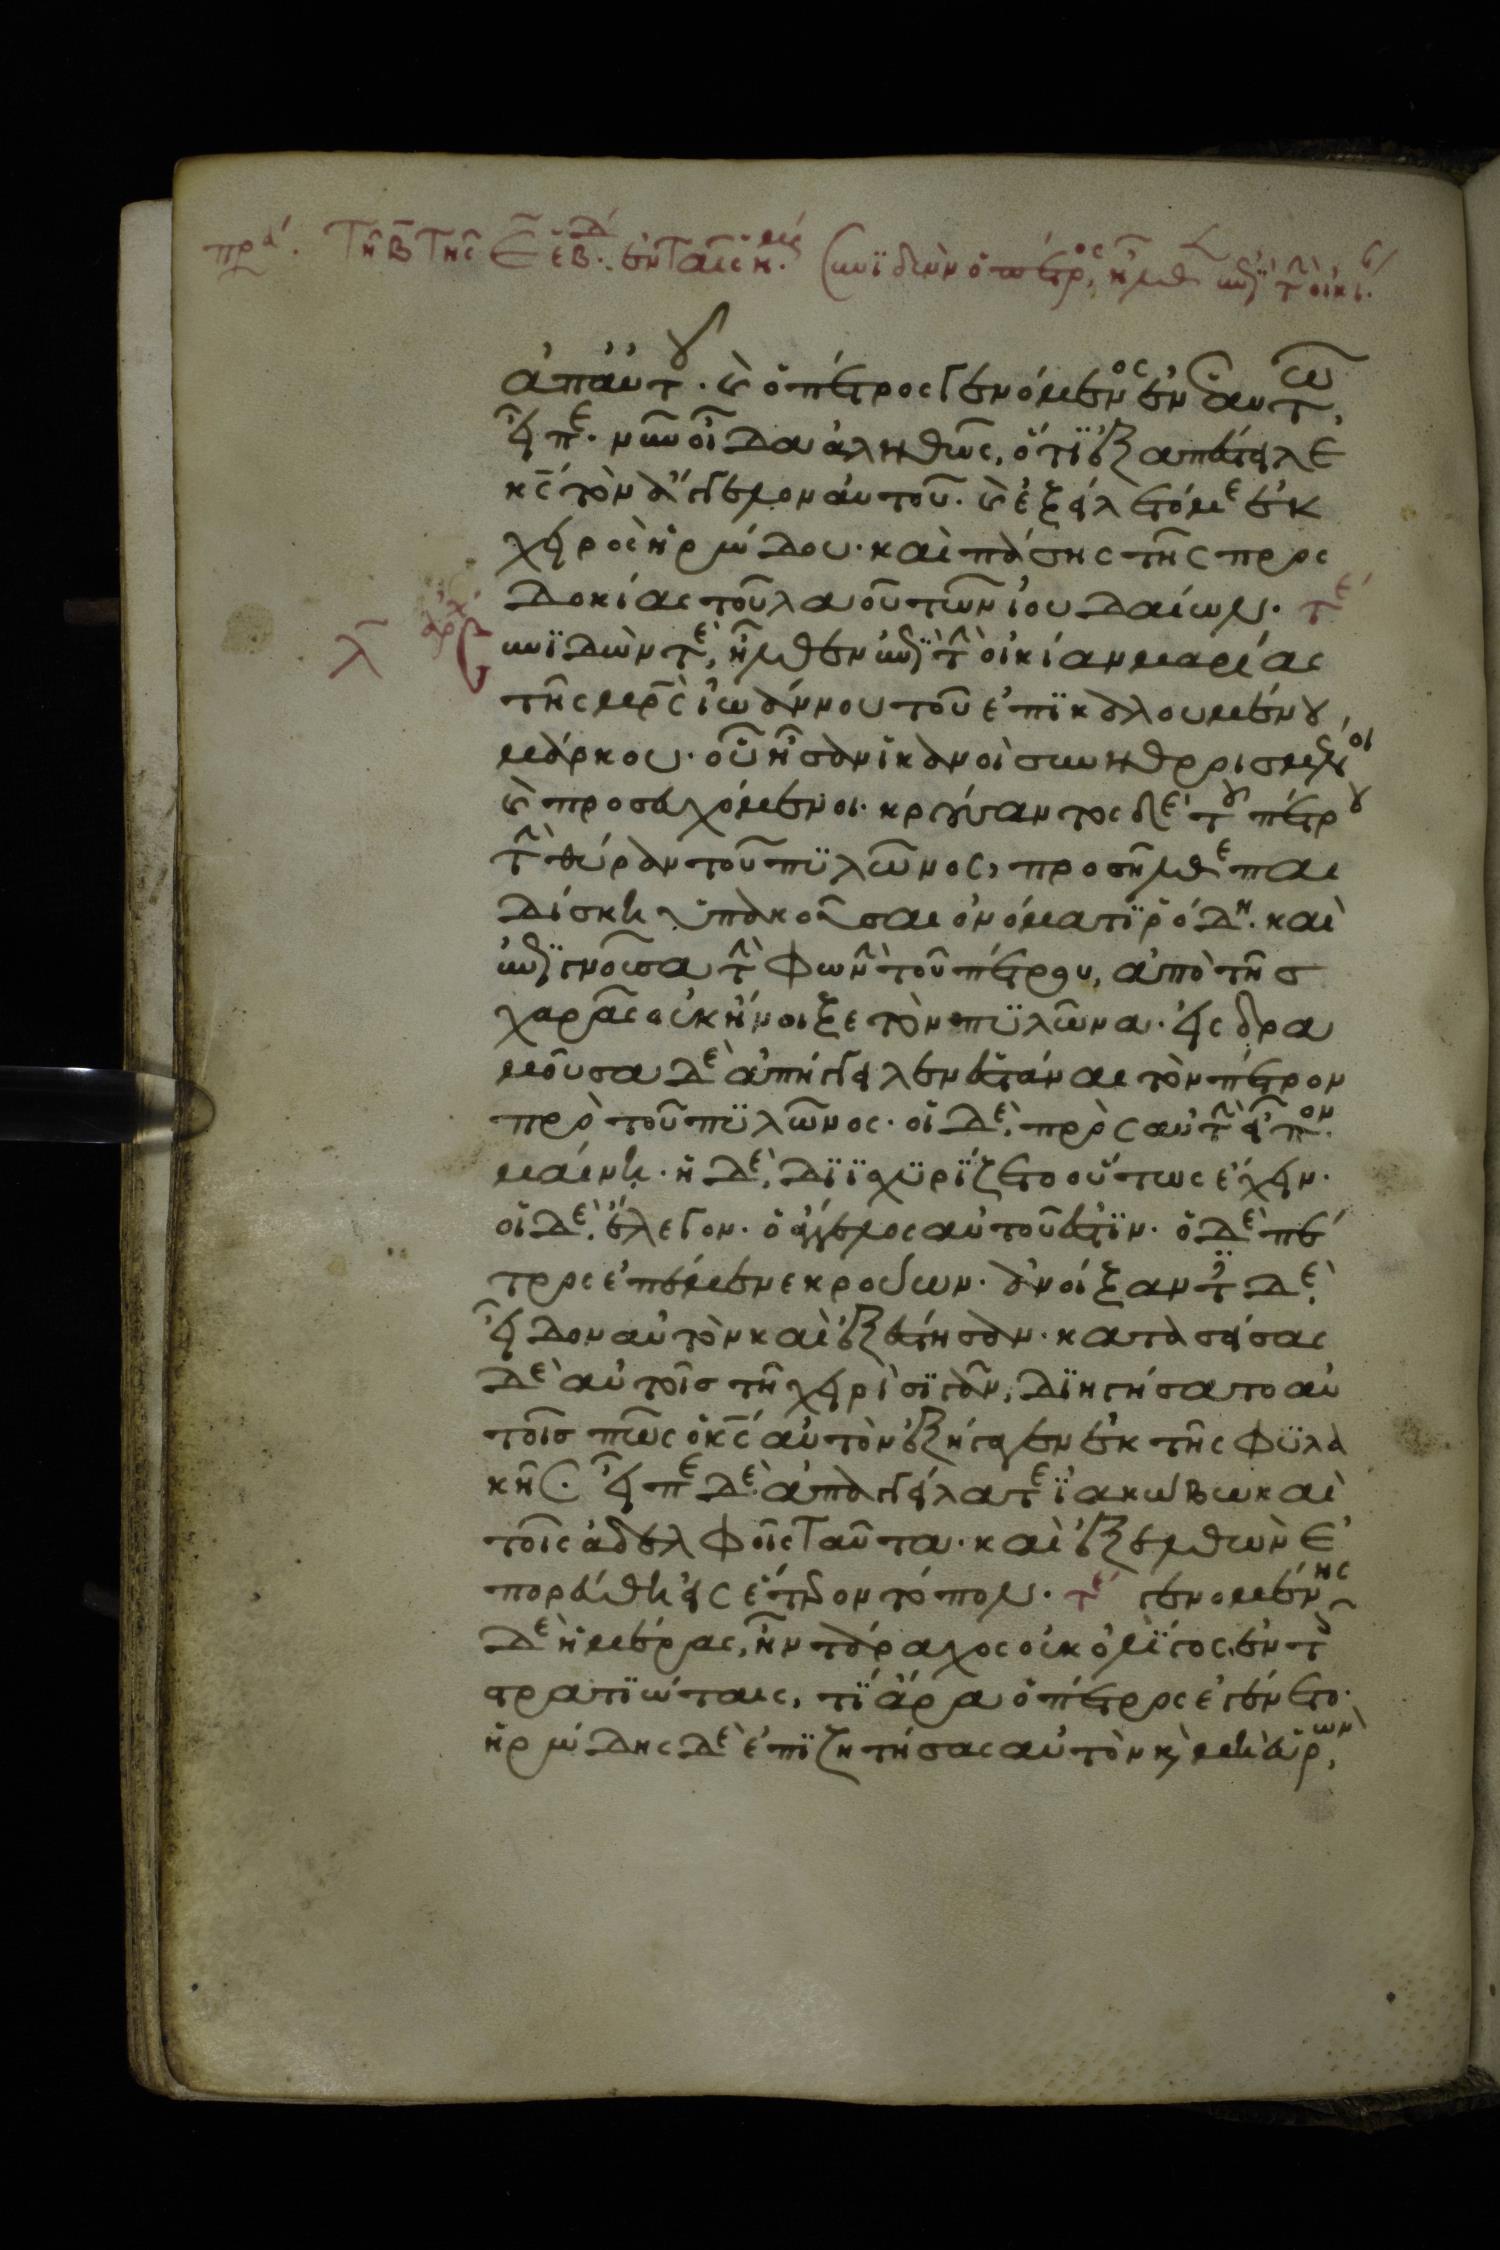 πρα. Τῆ β τῆς ε̄ ἑβδ. ἐν ταῖς ἡμεραις (συνϊδὼν ὁ πέτρος, ἦλθεν ἐπὶ τὴν οἰκι.
ἀπ' ἀυτου. καὶ ὁ πέτρος γενόμενος ἐν ἑαυτῶ,
εἶπε. νῦν οἶδα ἀληθῶς, ὅτϊ ἐξαπέστειλε
κ̅ς̅ τὸν ἄγγελον ἀυτοῦ. καὶ ἐξείλετό με ἐκ
χειρος ἡρώδου. καὶ πάσης τῆς προς
δοκίας τοῦ λαοῦ τῶν ϊουδαίων. τε
αρχ συνϊδών τε, ἦλθεν ἐπὶ τὴν οἰκίαν μαρίας
λ
τῆς μρ̅ς̅ ἰωάννου τοῦ ἐπϊκαλουμένου
μάρκου. οὗ ἦσαν ἱκανοὶ συνηθροισμένοι
καὶ προσευχόμενοι. κρούσαντος δὲ τοῦ πέτρου
τὴν θύραν τοῦ πϋλῶνος, προσῆλθε παι
δίσκη ὑπακοῦσαι ὀνόματϊ ῥόδη. καὶ
ἐπϊγνοῦσα τὴν φωνὴν τοῦ πέτρου, ἀπὸ τῆσ
χαρᾶς οὐκ ἤνοιξε τὸν πϋλῶνα. εἰςδρα
μοῦσα δὲ ἀπήγγειλεν ἑστάναι τὸν πέτρον
πρὸ τοῦ πϋλῶνος. οἱ δὲ, πρὸς αὐτὴν εἶπον.
μαίνη. ἡ δὲ, δϊϊσχϋρϊζετο οὕτως ἔχειν.
οἱ δὲ, ἔλεγον. ὁ ἄγγελος αὐτοῦ ἐστϊν. ὁ δὲ πέ
τρος ἐπέμενε κρούων. ἀνοίξαντες δὲ,
εἶδον αὐτὸν καὶ ἐξέστησαν. κατασείσας
δὲ αὐτοῖσ τῆ χειρὶ σϊγᾶν, δϊηγήσατο αὐ
τοῖσ πῶς ὁ κ̅ς̅ αὐτὸν ἐξήγαγεν ἐκ τῆς φϋλα
κῆς. εἶπε δὲ ἀπαγγείλατε ϊακώβω καὶ
τοῖς ἀδελφοῖς ταῦτα. καὶ ἐξελθὼν ἐ
πορεύθη εἰς ἕτερον τόπον. τε γενομένης
δὲ ἡμέρας, ἦν τάραχος οὐκ ὀλϊγος ἐν τοῖς
στρατϊώταις, τϊ ἄρα ὁ πέτρος ἐγένετο.
ἡρώδης δὲ ἐπϊζητήσας αὐτὸν καὶ μὴ εὑρὼν,